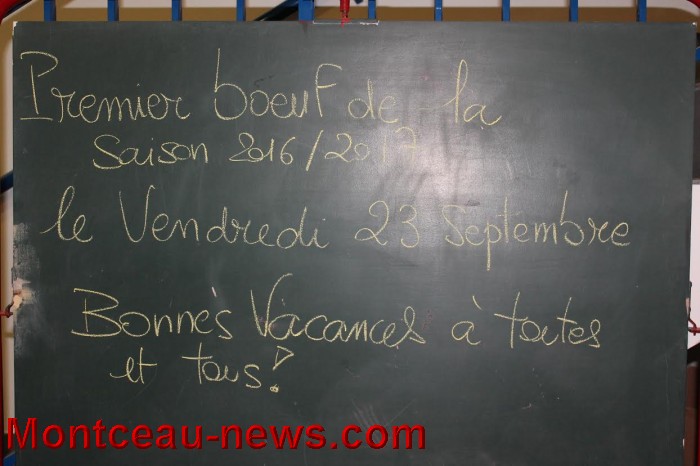 Premier boeuf de la
saison 2016/2017
le Vendredi 23 Septembre
Bonnes Vacances à toutes
et tous!
Montceau-news.com